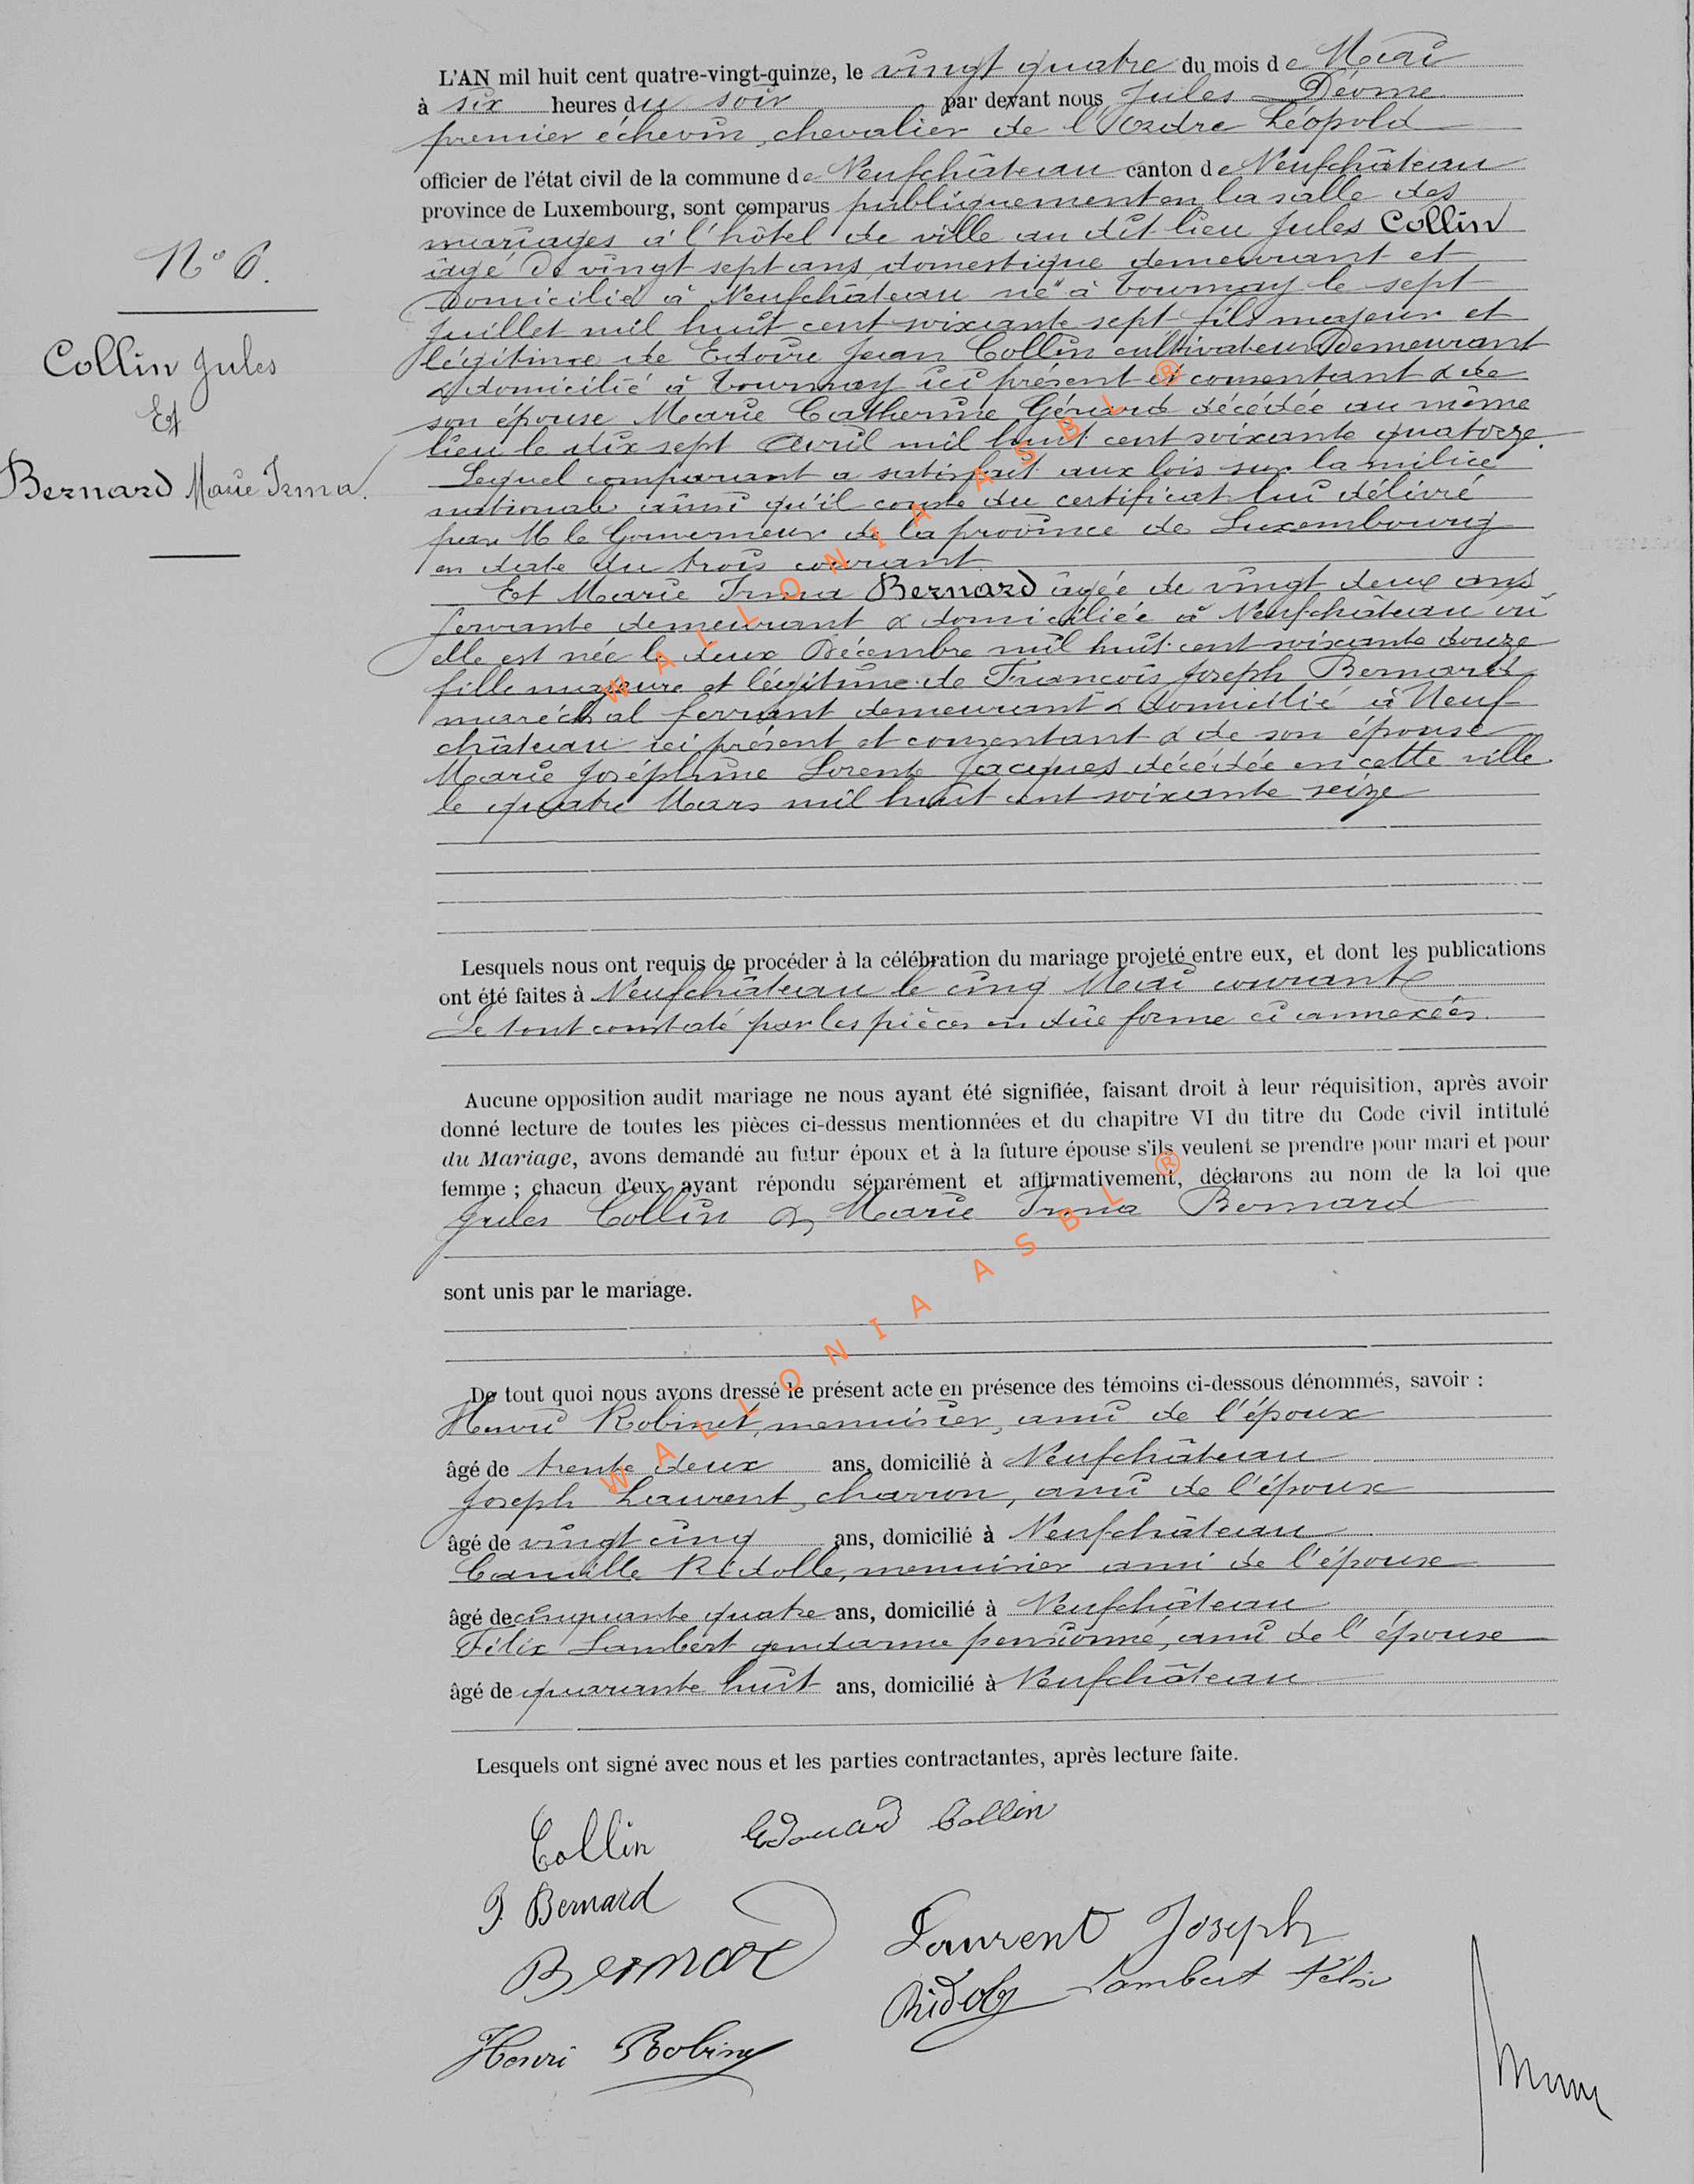 L'AN mil huit cent quatre-vingt-quinze, le vingt quatre du mois de Mai
à six heures du soir par devant nous Jules Déome
premier échevin, chevalier de l'Ordre Léopold
officier de l'état civil de la commune de Neufchâteau canton de Neufchâteau
province de Luxembourg, sont comparus publiquement en la salle des
mariages à l'hôtel de ville au dit lieu Jules Collin
N° 6.
âgé de vingt sept ans domestique demeurant et
domicilié à Neufchâteau né à Tournay le sept
Juillet mil huit cent soixante sept fils majeur et
Collin Jules
Et
Bernard Marie Irma.
légitime de Jean Collin cultivateur demeurant
& domicilié à Tournay ici présent et consentant & de
son épouse Marie Catherine Gérard décédée au même
lieu le dix sept Avril mil huit cent soixante quatorze.
Lequel comparant a satisfait aux lois sur la milice
nationale ainsi qu'il conste du certificat lui délivré
par M le Gouverneur de la province de Luxembourg
en date du trois courant
Et Marie Irma Bernard âgée de vingt deux ans
servante demeurant & domiciliée à Neufchâteau où
elle est née le deux Décembre mil huit cent soixante douze
fille majeure et légitime de François Joseph Bernard
maréchal ferrant demeurant & domicilié à Neuf-
château ici présent et consentant & de son épouse
Marie Joséphine Lorente Jacques décédée en cette ville
le quatre Mars mil huit cent soixante seize
Lesquels nous ont requis de procéder à la célébration du mariage projeté entre eux, et dont les publications
ont été faites à Neufchâteau le cinq Mai courant
Le tout constaté par les pièces en due forme ci annexées.
Aucune opposition audit mariage ne nous ayant été signifiée, faisant droit à leur réquisition, après avoir
donné lecture de toutes les pièces ci-dessus mentionnées et du chapitre VI du titre du Code civil intitulé
du Mariage, avons demandé au futur époux et à la future épouse s'ils veulent se prendre pour mari et pour
femme ; chacun d'eux ayant répondu séparément et affirmativement, déclarons au nom de la loi que
Jules Collin & Marie Irma Bernard
sont unis par le mariage.
De tout quoi nous avons dressé le présent acte en présence des témoins ci-dessous dénommés, savoir :
Henri Robinet, menuisier, ami de l'époux
âgé de trente deux ans, domicilié à Neufchâteau
Joseph Laurent, charron, ami de l'époux
âgé de vingt cinq ans, domicilié à Neufchâteau
Camille Ridolle, menuisier ami de l'épouse
âgé de cinquante quatre ans, domicilié à Neufchâteau
Félix Lambert gendarme pensionné, ami de l'épouse
âgé de quarante huit ans, domicilié à Neufchâteau
Lesquels ont signé avec nous et les parties contractantes, après lecture faite.
Collin Edouard Collin
J. Bernard
Bernard Laurent Joseph
Lambert Félix
Henri Robinet
WALLONIA ASBL ®
WALLONIA ASBL ®